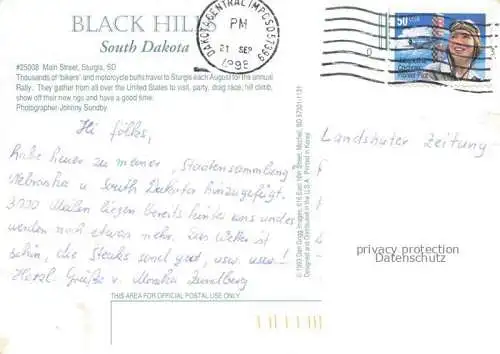 BLACK HILLS
South Dakota
#25008 Main Street, Sturgis, SD
Thousands of "bikers" and motorcycle buffs travel to Sturgis each August for the annual
Rally. They gather from all over the United States to visit, party, drag race, hill climb,
show off their new rigs and have a good time.
Photographer-Johnny Sundby
DAKOTA CENTRAL IMPC SD 57399
PM
21 SEP
1998
50
Hi folks,
habe heuer zu meiner „Staatensammlung
Nebraska u. South Dakota hinzugefügt.
3000 Meilen liegen bereits hinter uns und es
werden noch etwas mehr. Das Wetter ist
schön, die Steaks sind gut, usw. usw.!
Herzl. Grüße v. Monika
THIS AREA FOR OFFICIAL POSTAL USE ONLY
© 1993 Dan Grigg Images, 616 East 16th Street, Mitchell, SD 57301/1131
Designed and Distributed in the U.S.A. Printed in Korea
Landshuter Zeitung
privacy protection
Datenschutz